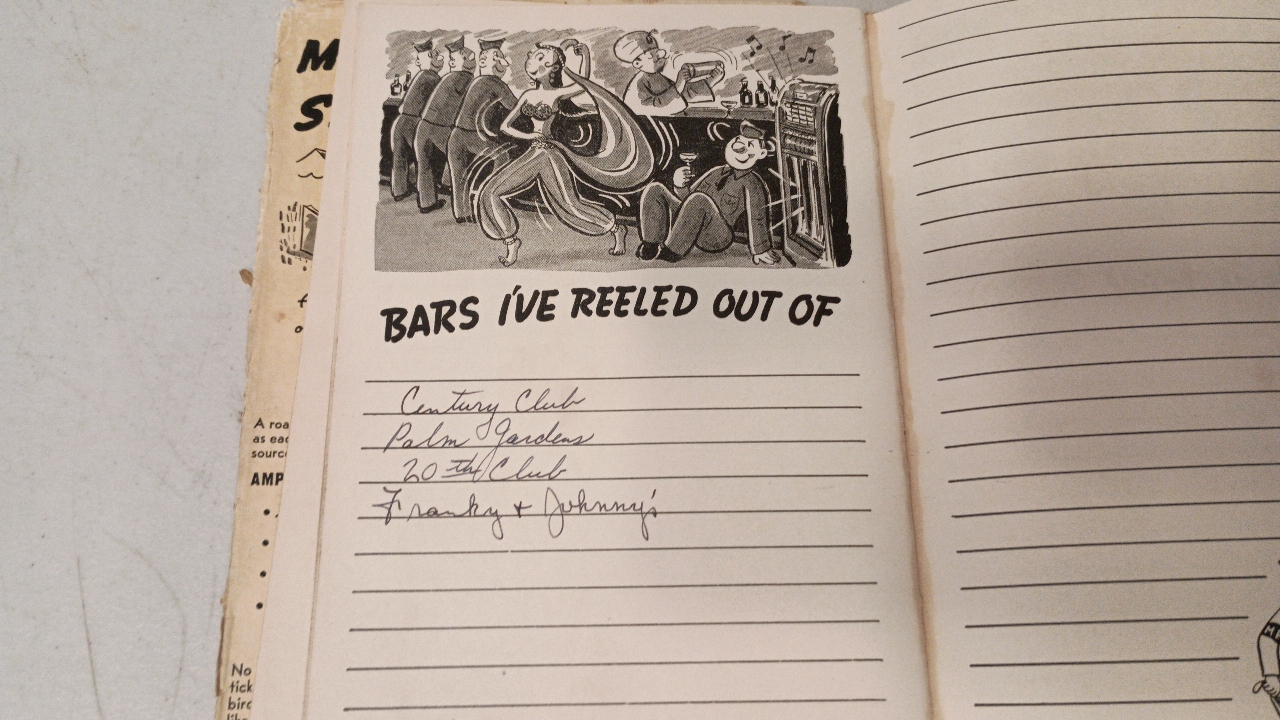 M
S
BARS I'VE REELED OUT OF
Century Club
Palm Gardens
20th Club
Franky + Johnny's
A roa
as eac
source
AMP
No
tick
bird